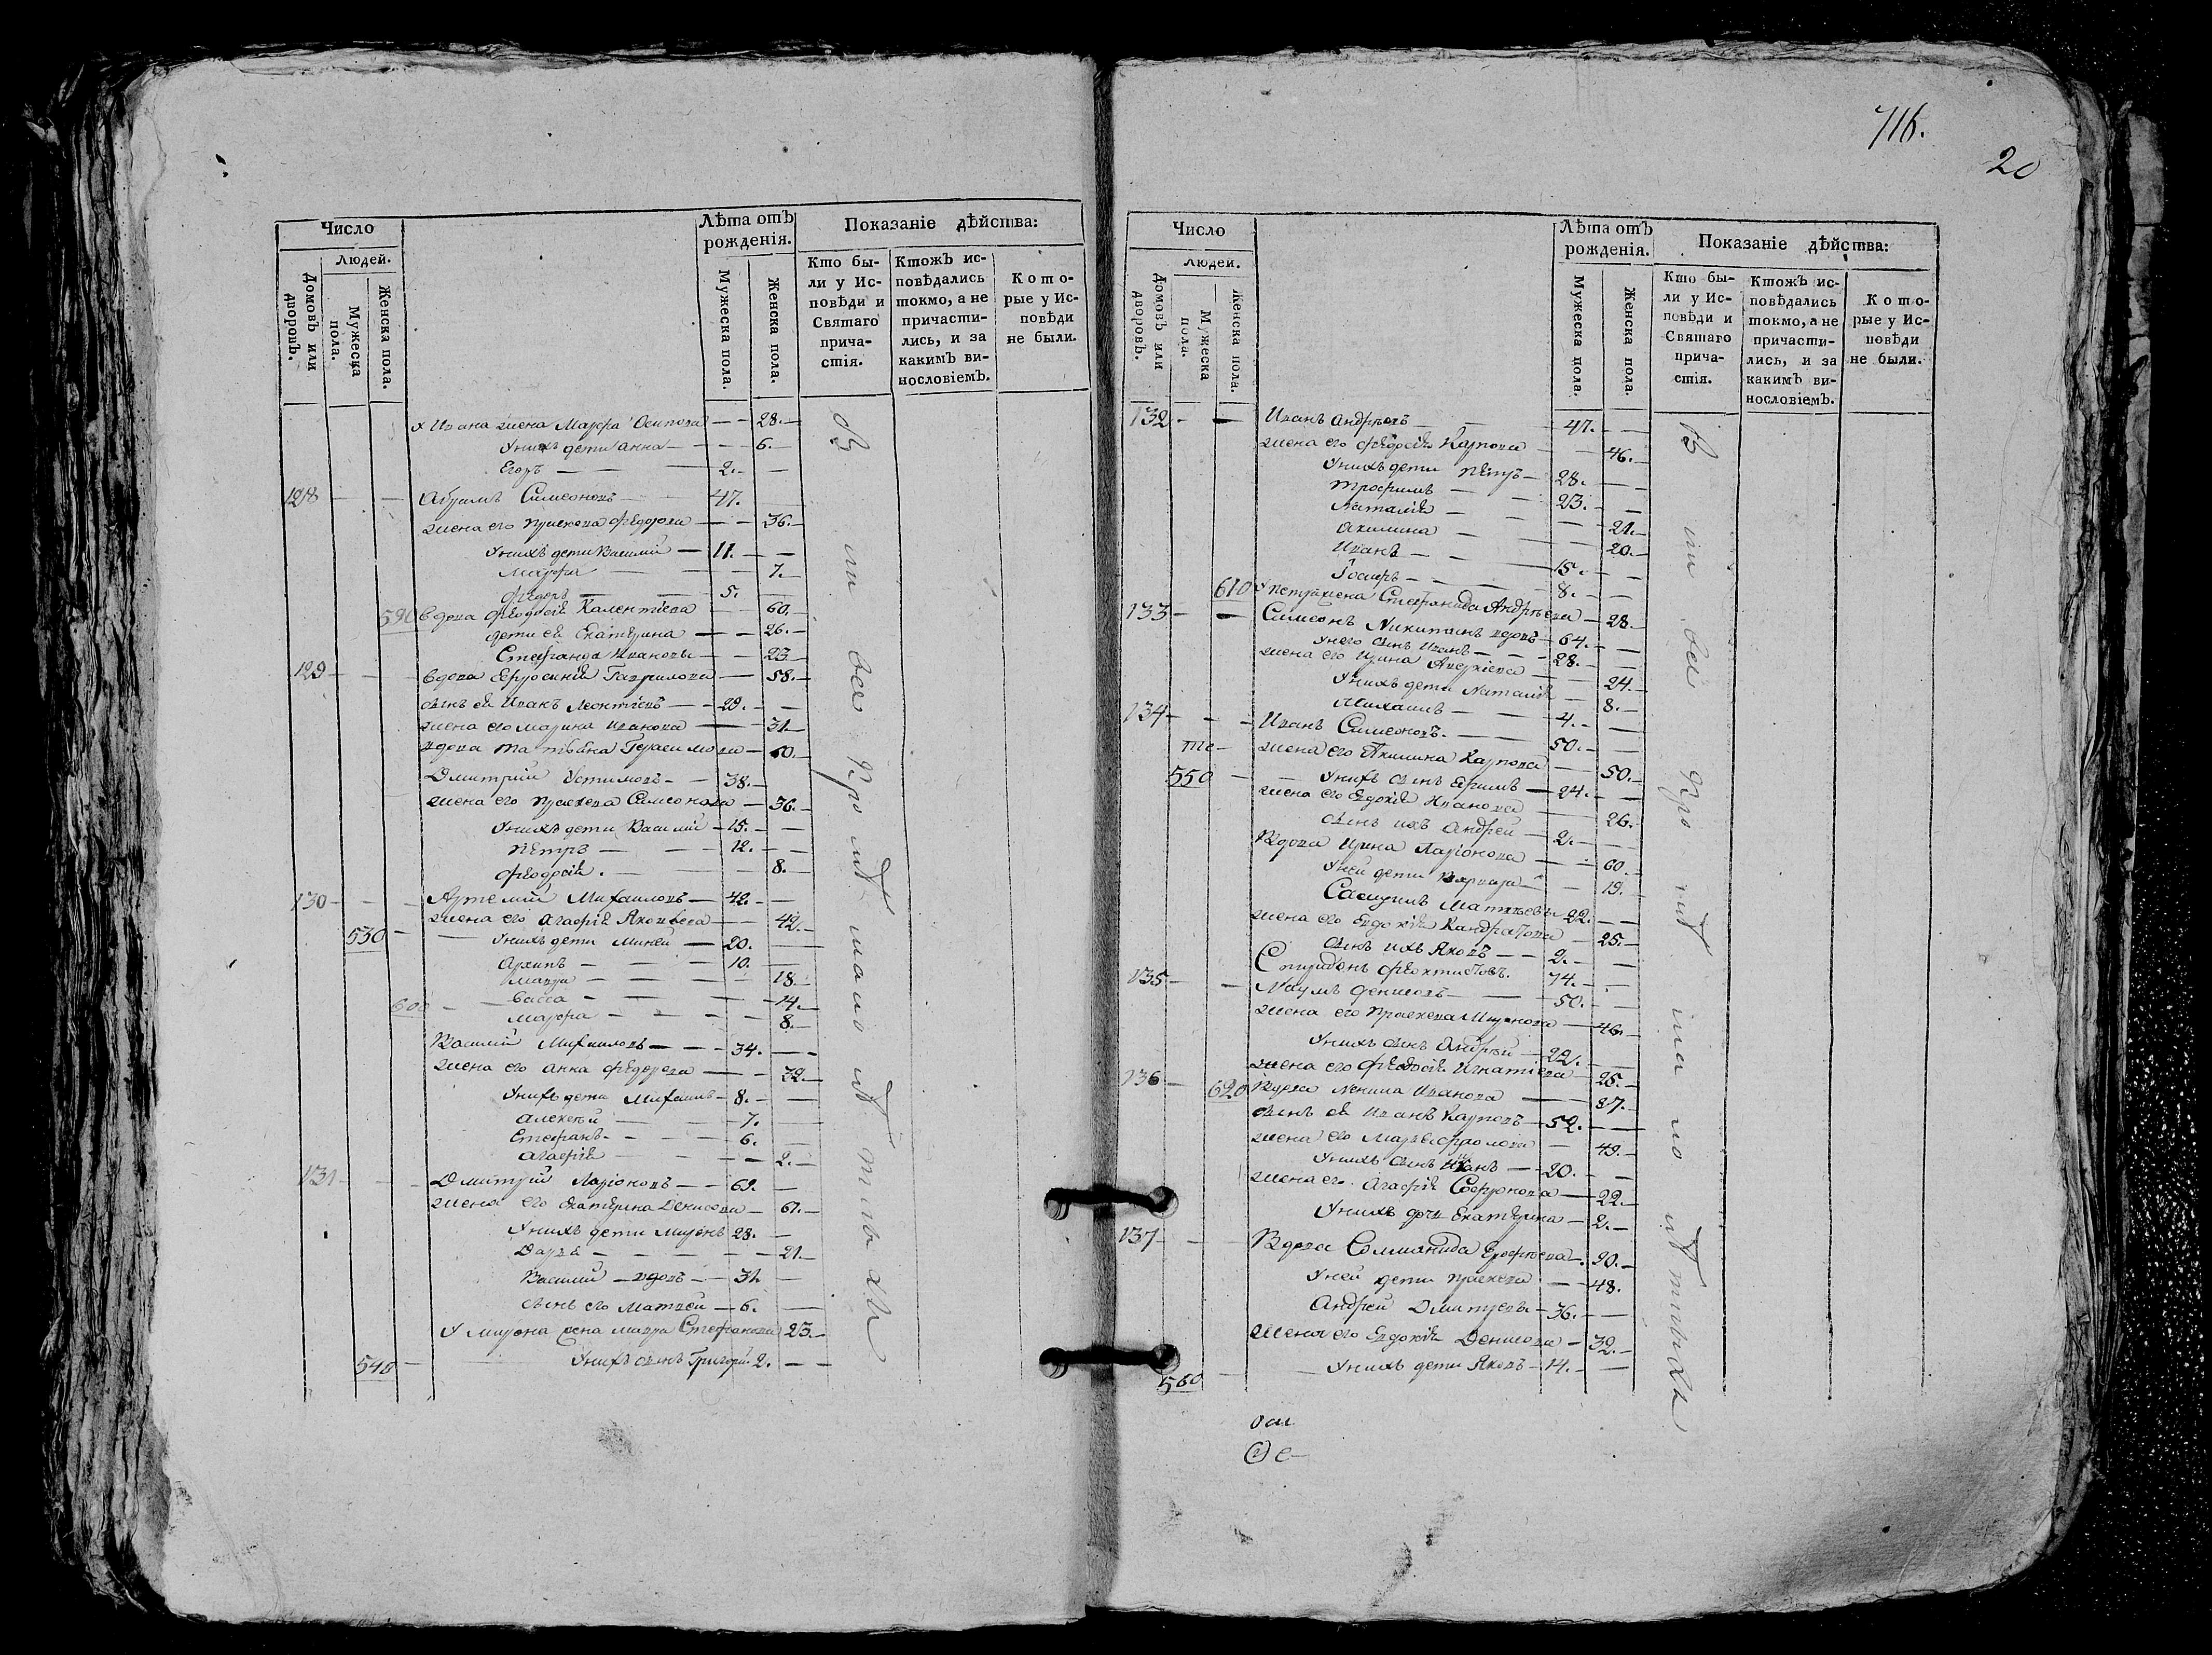 Число
Людей.
Домовъ или дворовъ.
Мужеска пола.
Женска пола.
Лѣта отъ рожденія.
Мужеска пола.
Женска пола.
Показаніе дѣйства:
Кто были у Исповѣди и Святаго причастія.
Ктожъ исповѣдались токмо, а не причастились, и за какимъ винословіемъ.
Которые у Исповѣди не были.
У Ивана жена Марфа Осипова — — 28. —
Уних дети Анна — — 6. —
Егоръ — — 2. —
128 — — Абрамъ Симеоновъ — 47. —
жена его Праскева Федорова — — 36. —
Унихъ дети Василий — 11. — —
Марфа — — 7. —
Федоръ — 5. —
590 вдова Феодосія Калентіева — — 60. —
дети ея Екатерина — — 26. —
Стефанида Ивановы — — 23 —
129 — — вдова Ефросинія Гаврилова — 58. —
сынъ ея Иванъ Леонтіевъ — — 29. — —
жена его Марина Иванова — — 31 —
вдова Татьяна Герасимова — 60. —
Дмитрий Устимовъ — — 38. —
жена его Праскева Симеонова — 36. —
Унихъ дети Василий — 15. — —
Петръ — — 12. — —
Феодосія — — 8. —
130 — — Артемий Михаиловъ — 42. — —
жена его Агафія Яковлева — — 42. —
530 — Унихъ дети Миней — 20. —
Архипъ — — — 10. —
Мавра — — — 18 —
600 — — Васса — — — 14. —
Марфа — — — 8. —
Василий Михаиловъ — — — 34. — —
жена его Анна Федорова — — 32. —
Унихъ дети Михаилъ — 8. — —
Алексѣй — — 7. —
Стефанъ — — — 6. —
Агафія — — — 2. —
131 — — Дмитрий Ларіоновъ — — 69. —
жена его Екатерина Денисова — 61. —
Унихъ дети Миронъ 28. —
Дарья — — — 21. —
Василий — вдовъ — — 31. —
сынъ его Матвей — 6. —
У Мирона жена Мавра Стефанова 23. —
540 — Унихъ сынъ Григорій 2. — —
716.
20
Число
Людей.
Домовъ или дворовъ.
Мужеска пола.
Женска пола.
Лѣта отъ рожденія.
Мужеска пола.
Женска пола.
Показаніе дѣйства:
Кто были у Исповѣди и Святаго причастія.
Ктожъ исповѣдались токмо, а не причастились, и за какимъ винословіемъ.
Которые у Исповѣди не были.
132 — — Иванъ Андрѣевъ — 47. — —
жена его Феодосія Карпова — — 46. —
Унихъ дети Петръ — 28. — —
Трофимъ — — 23. — —
Наталія — — — 21. —
Акилина — — — 20. —
Иванъ — — — 15. — —
Іосифъ — — — 8. — —
610 У Петра жена Стефанида Андрѣева — 28. —
133 — — Симеонъ Никитинъ вдовъ — 64. — —
Унего сынъ Иванъ — — 28. — —
жена его Ирина — — 24. —
Унихъ дети Наталія — 8. —
Михаилъ — — 4. — —
134 — — Иванъ Симеоновъ. — — 50. — —
жена его Акилина Карпова — 50. —
550 — Унихъ сынъ Ефимъ — 24. — —
жена его Евдокія Иванова — 26. —
сынъ ихъ Андрей — 2. — —
Вдова Ирина Ларіонова — — 60. —
Уней дети Варвара — — 19. —
Самуилъ Матвѣевы 22. — —
жена его Евдокія Кандратова — 25. —
сынъ ихъ Яковъ — — 2. — —
Спиридонъ Феоктистовъ. 74. — —
135 — — Наумъ Денисовъ — — 50. — —
жена его Праскева Миронова — 46. —
Унихъ сынъ Андрѣй — 22. — —
жена его Феодосія Игнатіева — 25. —
136 — 620 Вдова Ненила Иванова — 87. —
сынъ ея Иванъ Карповъ — 52. — —
жена его Марья Фролова — 49. —
Унихъ сынъ Иванъ — 20. — —
жена его Агафія Софронова — 22. —
Унихъ дочь Екатерина — 2. —
137 — — Вдова Соломанида Ерофѣева — 90. —
Уней дети Праскева — 48. —
Андрей Дмитріевы — 36. — —
жена его Евдокія Денисова — 32. —
560 — Унихъ дети Яковъ — 14. — —